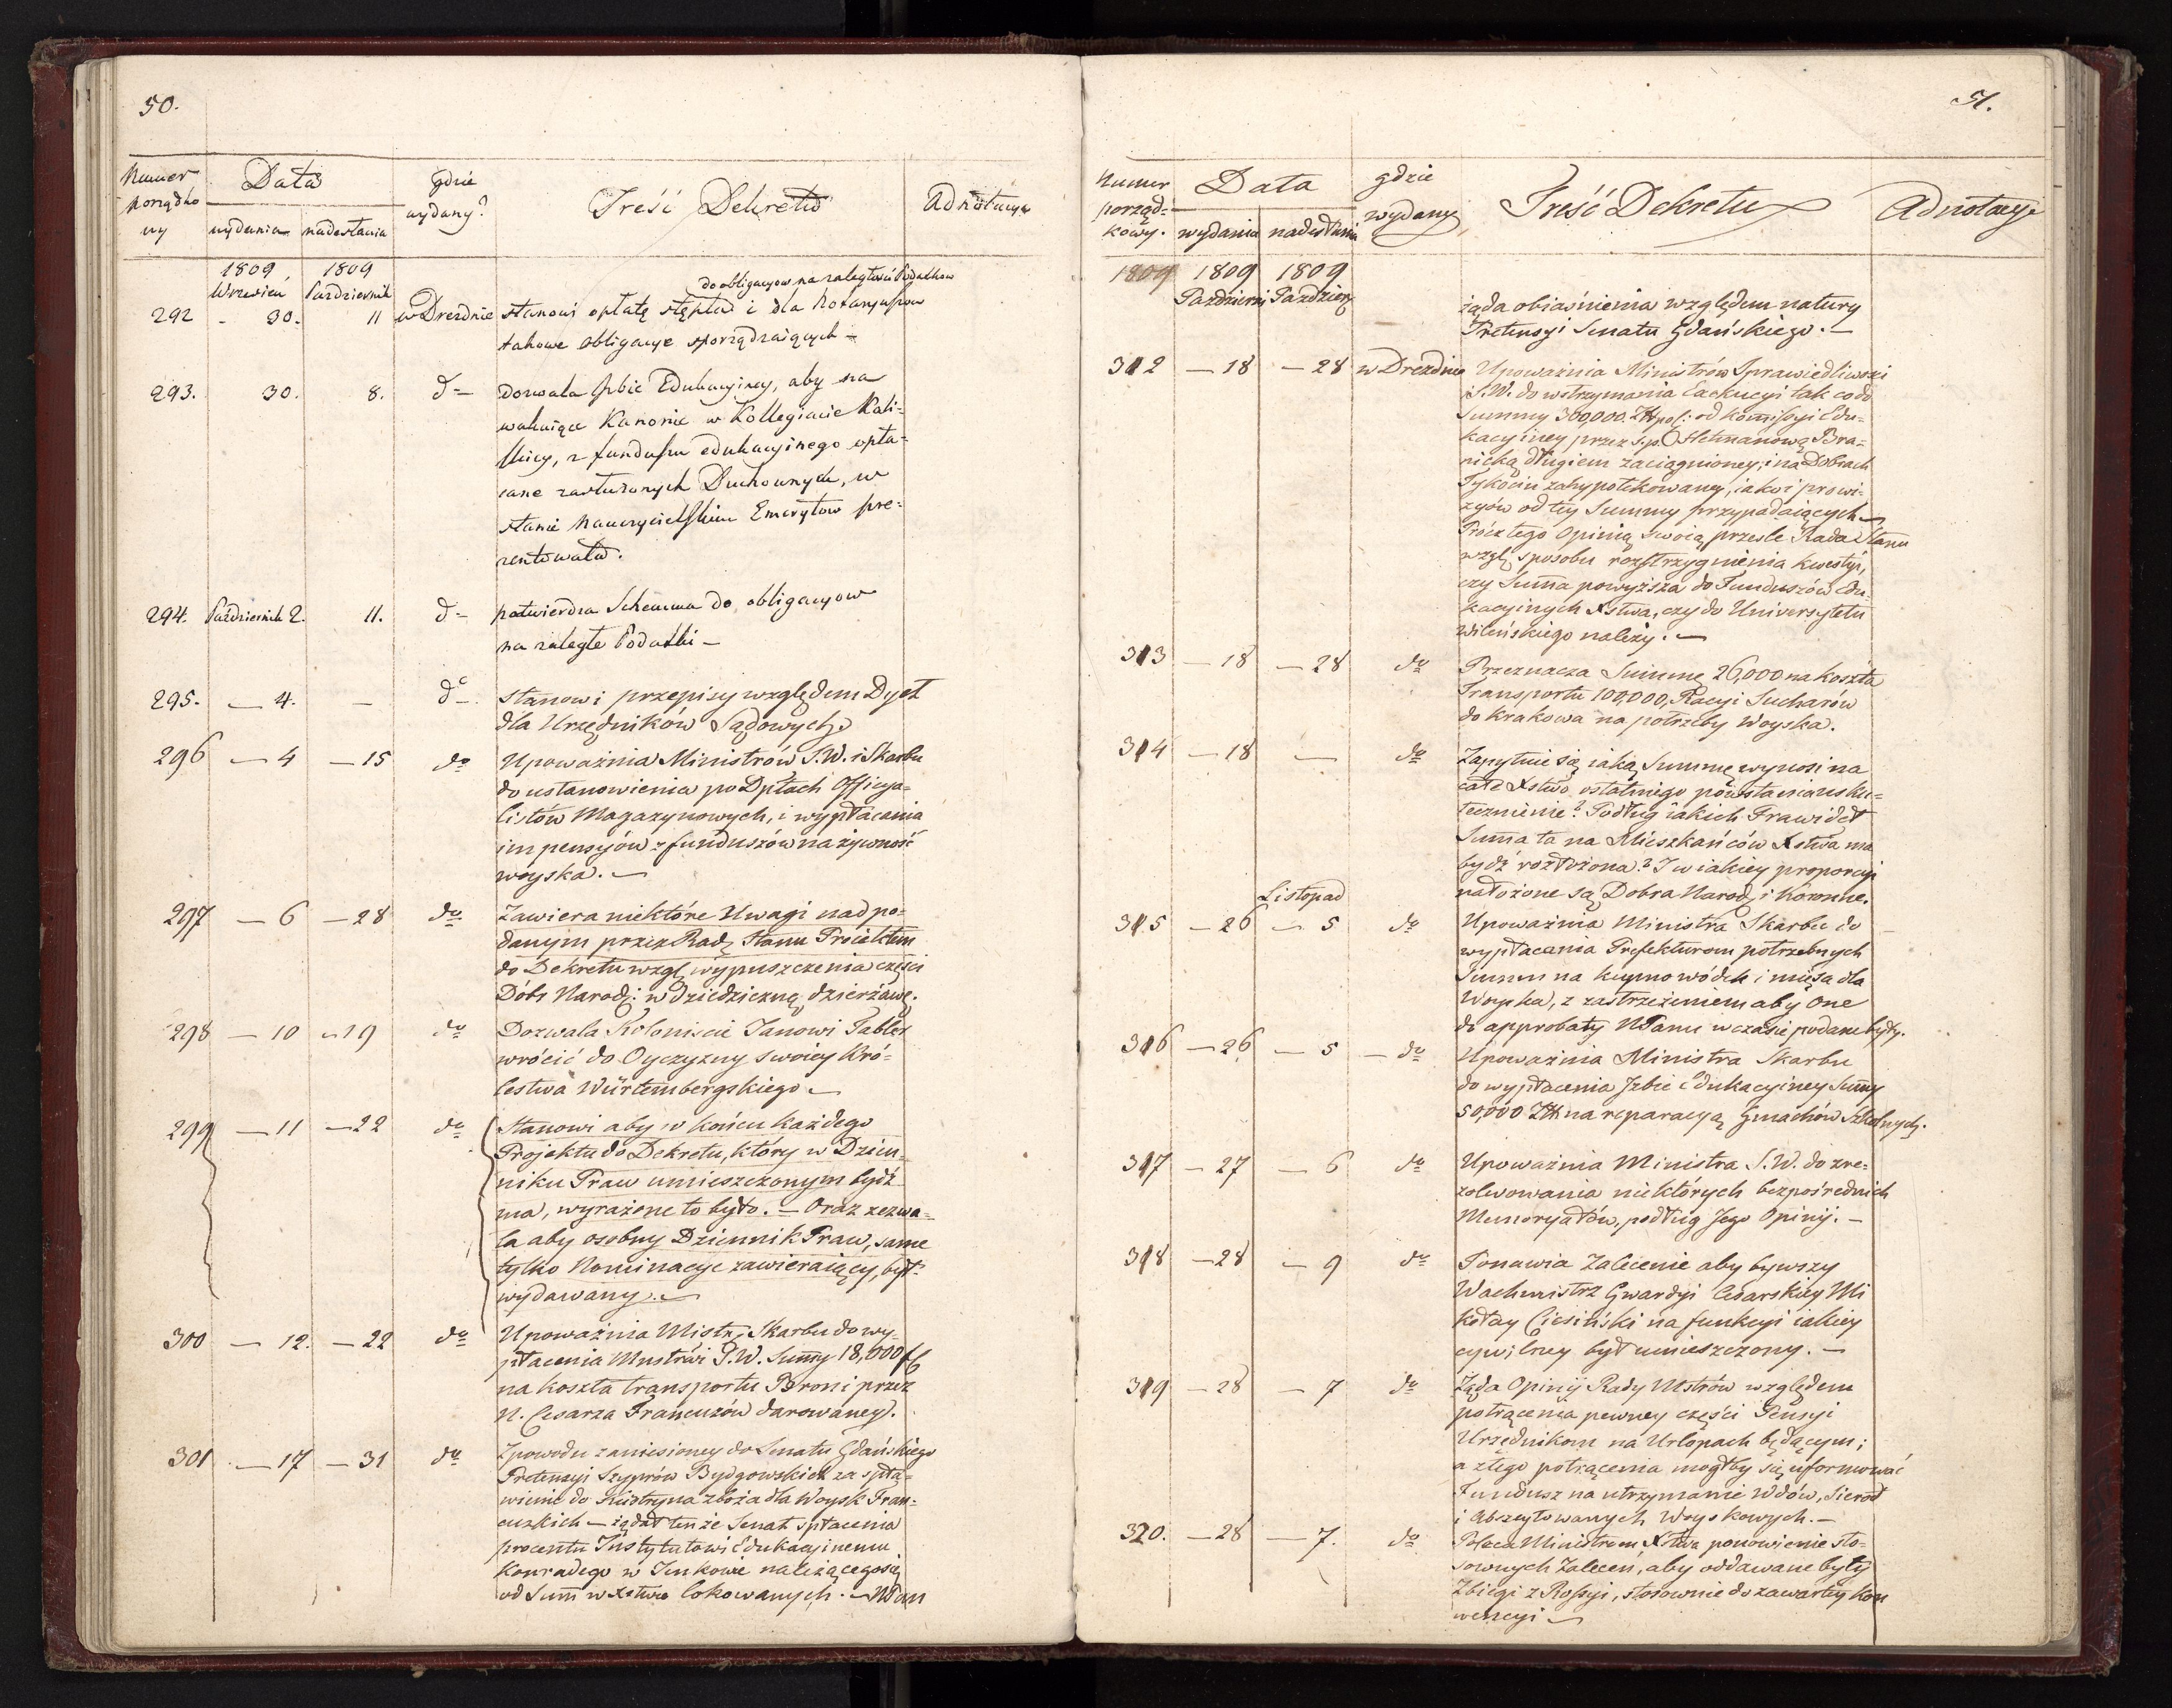 50.
Numer porządko wy
Data
wydania nadesłania
gdzie wydany?
Treść Dekretu
Adnotacya
1809 1809
Wrzesień Październik
do obligacyow na zaległości Podatkow
292 - 30. 11 w Dreznie stanowi opłatę stępla i dla Notaryuszow
takowe obligacye sporządzaiących -
293. 30. 8. d- dozwala Izbie Edukacyiney, aby na
wakuiące Kanonie w Kollegiacie Kali=
skiey, z funduszu edukacyinego opła=
cane zasłużonych Duchownych, w
stanie Nauczycielskim Emerytow pre=
zentowała.
294. Październik 2. 11. d- potwierdza Schemma do obligacyow
na zaległe Podatki -
295. - 4. - do- Stanowi przepisy względem Dyet
dla Urzędników Sądowych.
296 - 4 - 15 do Upoważnia Ministrów S.W. i Skarbu
do ustanowienia po Dptach Officya=
listów Magazynowych, i wypłacania
im pensyów z funduszów na żywność
woyska. -
297 - 6 - 28 do Zawiera niektóre Uwagi nad po=
danym przez Radę Stanu Proiektem
do Dekretu wzglę wypuszczenia części
Dóbr Narod: w dziedziczną dzierżawę.
298 - 10 - 19 do Dozwala Koloniscie Janowi Fabler
wrócić do Oyczyzny swoiey Kró=
lestwa Würtembergskiego -
299 - 11 - 22 do Stanowi aby w końcu każdego
Projektu do Dekretu, który w Dzien=
niku Praw umieszczonym bydź
ma, wyrażone to było. - Oraz zezwa=
la aby osobny Dziennik Praw, same
tylko Nominacye zawieraiący, był
wydawany. -
300 - 12. - 22 do Upoważnia Mistr: Skarbu do wy=
płacenia Mnstrowi S.W. Summy 18,000 fl
na koszta transportu Broni przez
N. Cesarza Francuzów darowaney.
301 - 17 - 31 do Z powodu zaniesioney do Senatu Gdańskiego
Pretensyi Szyprów Bydgowskich za spła=
wienie do Küstryna zboża dla Woysk Fran=
cuzkich - żądał tenże Senat spłacenia
procentu Instytutowi Edukacyinemu
Konradego w Jenkowie należącego się
od Summ w Xstwie lokowanych. - NPan
51.
Numer porząd= kowy.
Data
wydania nadesłania
gdzie wydany
Treść Dekretu
Adnotacye
1809 1809 1809
Październ Październ
żąda obiaśnienia względem natury
Pretensyi Senatu Gdańskiego. -
312 - 18 - 28 w Dreznie Upoważnia Ministrów Sprawiedliwości
i S.W. do wstrzymania Exekucyi tak co do
Summy 300,000. Złł pol: od Komissyi Edu=
kacyiney przez s.p. Hetmanową Bra=
nicką długiem zaciągnioney, i na Dobrach
Tykocin zahypotekowaney, iako i prowi=
zyów od tey Summy przypadaiących -
Prócz tego Opinią swoią prześle Rada Stanu
wzglę sposobu rozstrzygnienia kwestyi,
czy Summa powyższa do Funduszów Edu=
kacyinych Xstwa, czy do Uniwersytetu
Wileńskiego należy. -
313 - 18 - 28 do Przeznacza Summę 26,000 na koszta
Transportu 100,000, Racyi Sucharów
do Krakowa na potrzeby Woyska.
314 - 18 - do Zapytuie się iaką Summę wynosi na
całe Xstwo ostatniego powstania usku=
tecznienie? Podług iakich Prawideł
Summa ta na Mieszkańców Xstwa ma
bydź rozłożona? I w iakiey proporcyi
nałożone są Dobra Narod: i Koronne.
Listopad
315 - 26 - 5 do Upoważnia Ministra Skarbu do
wypłacania Prefekturom potrzebnych
Summ na kupno wódek i mięsa dla
Woyska, z zastrzeżeniem aby One
do approbaty NPanu w czasie podane były.
316 - 26 - 5 - do Upoważnia Ministra Skarbu
do wypłacenia Izbie Edukacyiney Summy
50,000 Złł na reparacyą Gmachów Szkolnych.
317 - 27 - 6 do Upoważnia Ministra S.W. do zre=
zolwowania niektórych bezpośrednich
Memoryałów, podług Jego Opinij. -
318 - 28 - 9 do Ponawia Zalecenie aby bywszy
Wachmistrz Gwardyi Cesarskiey Mi
kołay Ciesiński na funkcyi iakiey
cywilney był umieszczony. -
319 - 28 - 7 do Żąda Opinij Rady Mstrów względem
potrącenia pewney części Pensyi
Urzędnikom na Urlopach będącym;
a z tego potrącenia mógłby się uformować
Fundusz na utrzymanie Wdów, Sierot
i Abszeytowanych Woyskowych. -
320. - 28 - 7. do Poleca Ministrom Xstwa ponowienie sto=
sownych Zaleceń, aby oddawane były
Zbiegi z Rossyi, stosownie do zawartey Kon
wencyi -